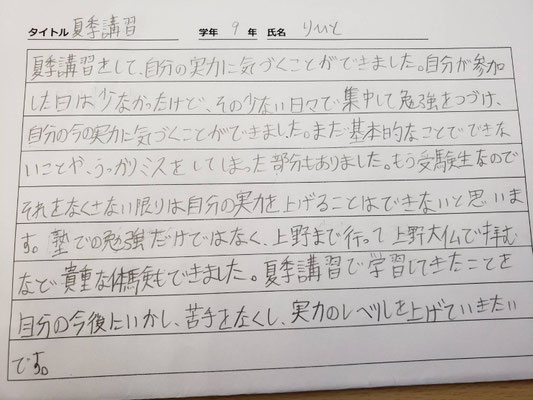 タイトル 夏季講習 学年 9 年 氏名 りいと
夏季講習をして、自分の実力に気づくことができました。自分が参加
した日は少なかったけど、その少ない日々で集中して勉強をつづけ、
自分の今の実力に気づくことができました。まだ基本的なことでできな
いことや、うっかりミスをしてしまった部分もありました。もう受験生なので
それをなくさない限りは自分の実力を上げることはできないと思いま
す。塾での勉強だけではなく、上野まで行って上野大仏で拝む
など貴重な体験もできました。夏季講習で学習してきたことを
自分の今後にいかし、苦手をなくし、実力のレベルを上げていきたい
です。